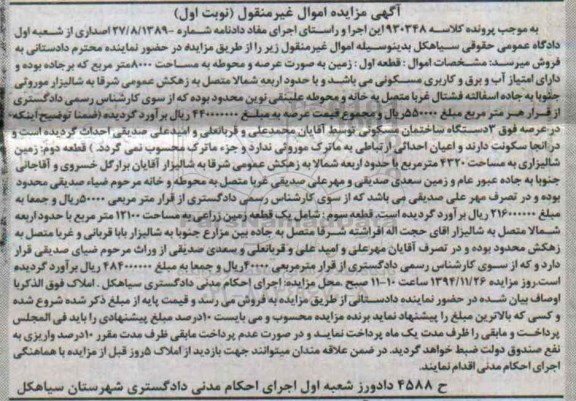 آگهی مزایده اموال غیرمنقول (نوبت اول)
به موجب پرونده کلاسه ۹۳۰۳۴۸ این اجرا و راستای اجرای مفاد دادنامه شماره -۲۷/۸/۱۳۸۹ اصداری از شعبه اول
دادگاه عمومی حقوقی سیاهکل بدینوسیله اموال غیرمنقول زیر را از طریق مزایده در حضور نماینده محترم دادستانی به
فروش میرسد: مشخصات اموال : قطعه اول : زمین به صورت عرصه و محوطه به مساحت ۸۰۰۰متر مربع که برجاده بوده و
دارای امتیاز آب و برق و کاربری مسکونی می باشد و با حدود اربعه شمالا متصل به زهکش عمومی شرقا به شالیزار موروثی
جنوبا به جاده اسفالته فشتال غربا متصل به خانه و محوطه علینقی نوین محدود بوده که از سوی کارشناس رسمی دادگستری
از قرار هر متر مربع مبلغ ۵۵۰۰۰۰ریال و مجموع قیمت عرصه به مبلغ ۴۴۰۰۰۰۰۰۰۰ ریال برآورد گردیده (ضمنا توضیح اینکه
در عرصه فوق ۳دستگاه ساختمان مسکونی توسط آقایان محمدعلی و قربانعلی و امیدعلی صدیقی احداث گردیده است و
در انجا سکونت دارند و اعیان احداثی ارتباطی به ماترک موروثی ندارد و جزء ماترک محسوب نمی گردد. ) قطعه دوم: زمین
شالیزاری به مساحت ۴۳۲۰ مترمربع با حدود اربعه شمالا به زهکش عمومی شرقا به شالیزار آقایان برارگل خسروی و آقاجانی
جنوبا به جاده عبور عام و زمین سعدی صدیقی و مهرعلی صدیقی غربا متصل به محوطه و خانه مرحوم ضیاء صدیقی محدود
بوده و در تصرف مهر علی صدیقی می باشد که از سوی کارشناس رسمی دادگستری از قرار متر مربعی ۵۰۰۰۰ریال و جمعا به
مبلغ ۲۱۶۰۰۰۰۰۰ ریال برآورد گردیده است. قطعه سوم: شامل یک قطعه زمین زراعی به مساحت ۱۲۱۰۰ متر مربع با حدود اربعه
شمالا متصل به شالیزار اقای حجت اله افراشته شرقا متصل به جاده بین مزارع جنوبا به شالیزار بابا قربانی و غربا متصل به
زهکش محدود بوده و در تصرف آقایان مهرعلی و امید علی و قربانعلی و سعدی صدیقی از وراث مرحوم ضیای صدیقی قرار
دارد و که از سوی کارشناس رسمی دادگستری از قرار مترمربعی ۴۰۰۰۰ریال و جمعا به مبلغ ۴۸۴۰۰۰۰۰۰ ریال برآورد گردیده
است. روز مزایده ۱۳۹۴/۱۱/۲۶ ساعت ۱۰-۱۱ صبح محل مزایده: اجرای احکام مدنی دادگستری سیاهکل . املاک فوق الذکر با
اوصاف بیان شده در حضور نماینده دادستانی از طریق مزایده به فروش می رسد و قیمت پایه از مبلغ ذکر شده شروع شده
و کسی که بالاترین مبلغ را پیشنهاد نماید برنده مزایده محسوب و می بایست ۱۰درصد مبلغ پیشنهادی را باید فی المجلس
پرداخت و مابقی را ظرف مدت یک ماه پرداخت نمایند و در صورت عدم پرداخت مابقی ظرف مدت مقرر ۱۰درصد واریزی به
نفع صندوق دولت ضبط خواهد گردید. در ضمن علاقه مندان میتوانند جهت بازدید از املاک ۵روز قبل از مزایده با هماهنگی
اجرای احکام مدنی اقدام نمایند.
ح ۴۵۸۸ دادورز شعبه اول اجرای احکام مدنی دادگستری شهرستان سیاهکل